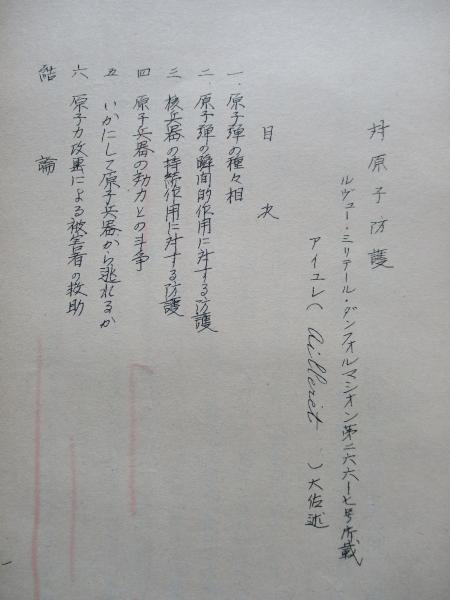 対原子防護
ルヴュー・ミリテール・ダンフォルマシオン第二六六ー七号所載
アイユレ(Ailleret)大佐述
目次
一.原子弾の種々相
二.原子弾の瞬間的作用に対する防護
三 核兵器の持続作用に対する防護
四 原子兵器の効力との斗争
五 いかにして原子兵器から逃れるか
六 原子力攻撃による被害者の救助
結論